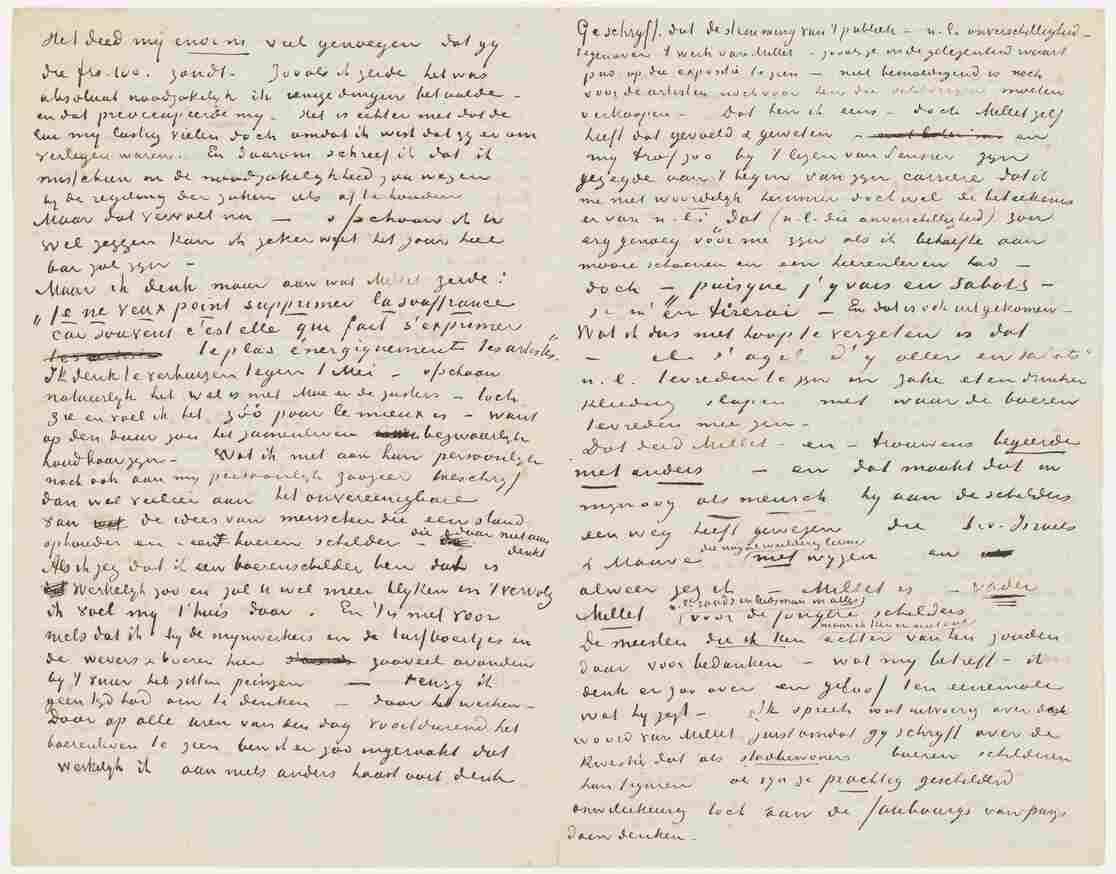 Het deed mij enorm veel genoegen dat gy
die frs. 100. zondt. Zooals ik zeide het was
absoluut noodzakelyk ik eenige dingen betaalde –
en dat preoccupeerde my. Het is echter niet dat de
lui my lastig vielen doch omdat ik wist dat zy er om
verlegen waren. En daarom schreef ik dat ik
misschien in de noodzakelykheid zou wezen
by de regeling der zaken iets af te houden
Maar dat vervalt nu – ofschoon ik U
wel zeggen kan ik zeker weet het jaar hier
bar zal zyn –
Maar ik denk maar aan wat Millet zeide:
„Je ne veux point supprimer la souffrance
car souvent c'est elle qui fait s'exprimer
le plus énergiquement les artistes”.
Ik denk te verhuizen tegen 1 Mei – ofschoon
natuurlyk het wel is met Moe en de zusters – toch
zie en voel ik het zóó pour le mieux is – want
op den duur zou het zamenleven bezwaarlyk
houdbaar zyn – Wat ik niet aan hun persoonlyk
noch ook aan my persoonlyk zoozeer toeschryf
dan wel veeleer aan het onvereenigbare
van de idees van menschen die een stand
ophouden en een boerenschilder – die daar niet aan
denkt
Als ik zeg dat ik een boerenschilder ben dat is
werkelyk zoo en zal U wel meer blyken in 't vervolg
ik voel my t'huis daar. En 't is niet voor
niets dat ik by de mynwerkers en de turfboertjes en
de wevers & boeren hier zooveel avonden
by 't vuur heb zitten peinzen – tenzy ik
geen tyd had om te denken – door het werken –
Door op alle uren van den dag voortdurend het
boerenleven te zien ben ik er zóó ingeraakt dat
werkelyk ik aan niets anders haast ooit denk
Ge schryft dat de stemming van 't publiek – n.l. onverschilligheid –
tegenover 't werk van Millet – zooals ge in de gelegenheid waart
juist op die expositie te zien – niet bemoedigend is noch
voor de artisten noch voor hen die schilderijen moeten
verkoopen – Dat ben ik eens – doch Millet zelf
heeft dat gevoeld & geweten – en
my trof zoo by 't lezen van Sensier zyn
gezegde aan 't begin van zyn carriere dat ik
me niet woordelyk herinner doch wel de beteekenis
er van n.l.: dat (n.l. die onverschilligheid) zou
erg genoeg vóór me zyn als ik behoefte aan
mooie schoenen en een heerenleven had –
doch – puisque j'y vais en sabots –
je m'en tirerai – En dat is ook uitgekomen –
Wat ik dus niet hoop te vergeten is dat
– „il s'agit d'y aller en sabots”
n.l. tevreden te zyn in zake eten drinken
kleeding slapen met waar de boeren
tevreden mee zyn –
Dat deed Millet – en – trouwens begeerde
niet anders – en dat maakt dat in
myn oog als mensch hy aan de schilders
een weg heeft gewezen die b.v. Israels
die nogal weelderig leven
& Mauve niet wyzen en
alweer zeg ik – Millet is – vader
n.l. raads en leidsman in alles
Millet, voor de jongere schilders
De meesten die ik ken echter van hen zouden
daar voor bedanken – wat my betreft – ik
denk er zoo over en geloof ten eenenmale
wat hy zegt – Ik spreek wat uitvoerig over dat
woord van Millet juist omdat gy schryft over de
kwestie dat als stadbewoners boeren schilderen
hun figuren al zyn ze prachtig geschilderd
onwillekeurig toch aan de faubourgs van parys
doen denken –